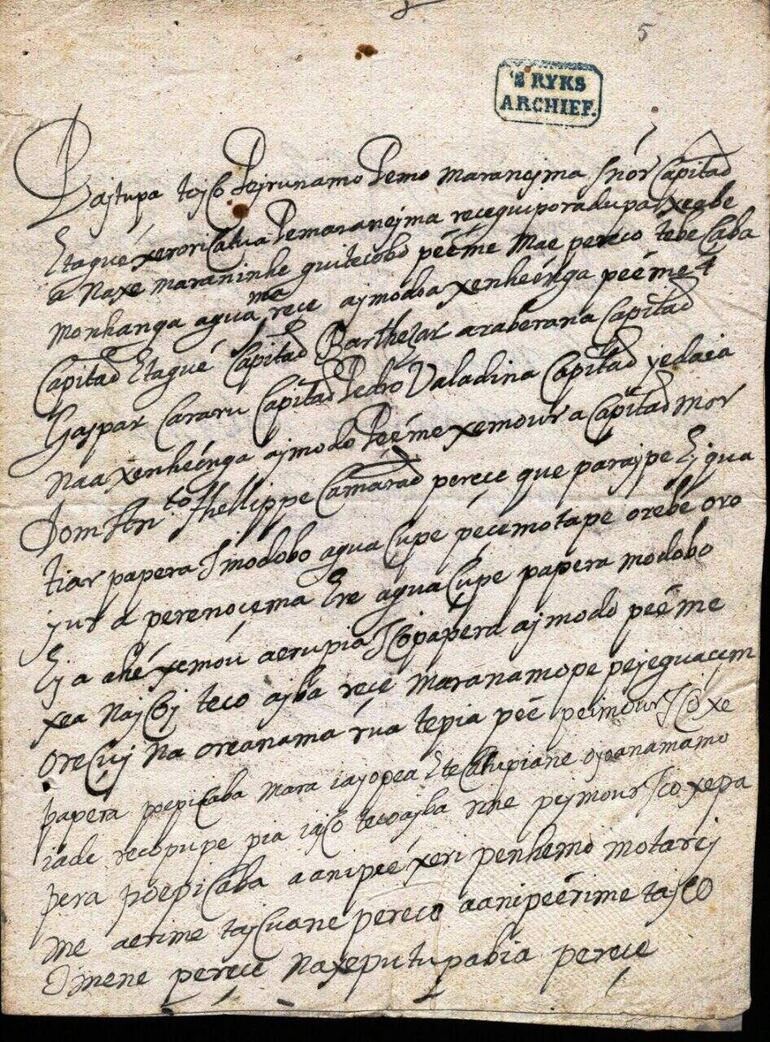 5
'S RYKS
ARCHIEF.
Pajtupa tojco Pejrunamo Pemo maranejma snor Capitaõ
Etagué xerori Catua Pemaranejma recequiporadupar xeabe
a naxe maraninhe guitecobo peẽme mae pereco tebe Caba
monhanga aguama rece ajmodoa xenheẽnga peẽme 4
Capitaõ Etagué Capitaõ Barthezar araberana Capitaõ
Gaspar Cararu Capitaõ Pedro Valadina Capitaõ jedaia
naa xenheẽnga ajmodo Peẽme xemoura Capitaõ mor
Dom Anto Phellippe Camaraõ perece que parajpe Ej qua
tiar papera Imodobo agua Cupe pecemotape orebe oro
jur a perenocema Ere agua Cupe papera modobo
Ej a ahé xemou aerupia Ico papera ajmodo peẽme
xea najCoj teco ajba rece maranamope pejeguacem
oreCuj na oreanama rua tepia peẽ pejmour Ico xe
papera poepiCaba mara iajopea Ete Catupiane ojoanamamo
iade recopupe pia iajCo tecoajba nhe pejmour Ico xepa
pera poepiCaba aanipeẽ xeri penhemo motarej
me aerime tajCuane perece aanipeẽrime tajCo
Omene perece naxeputupabia perece